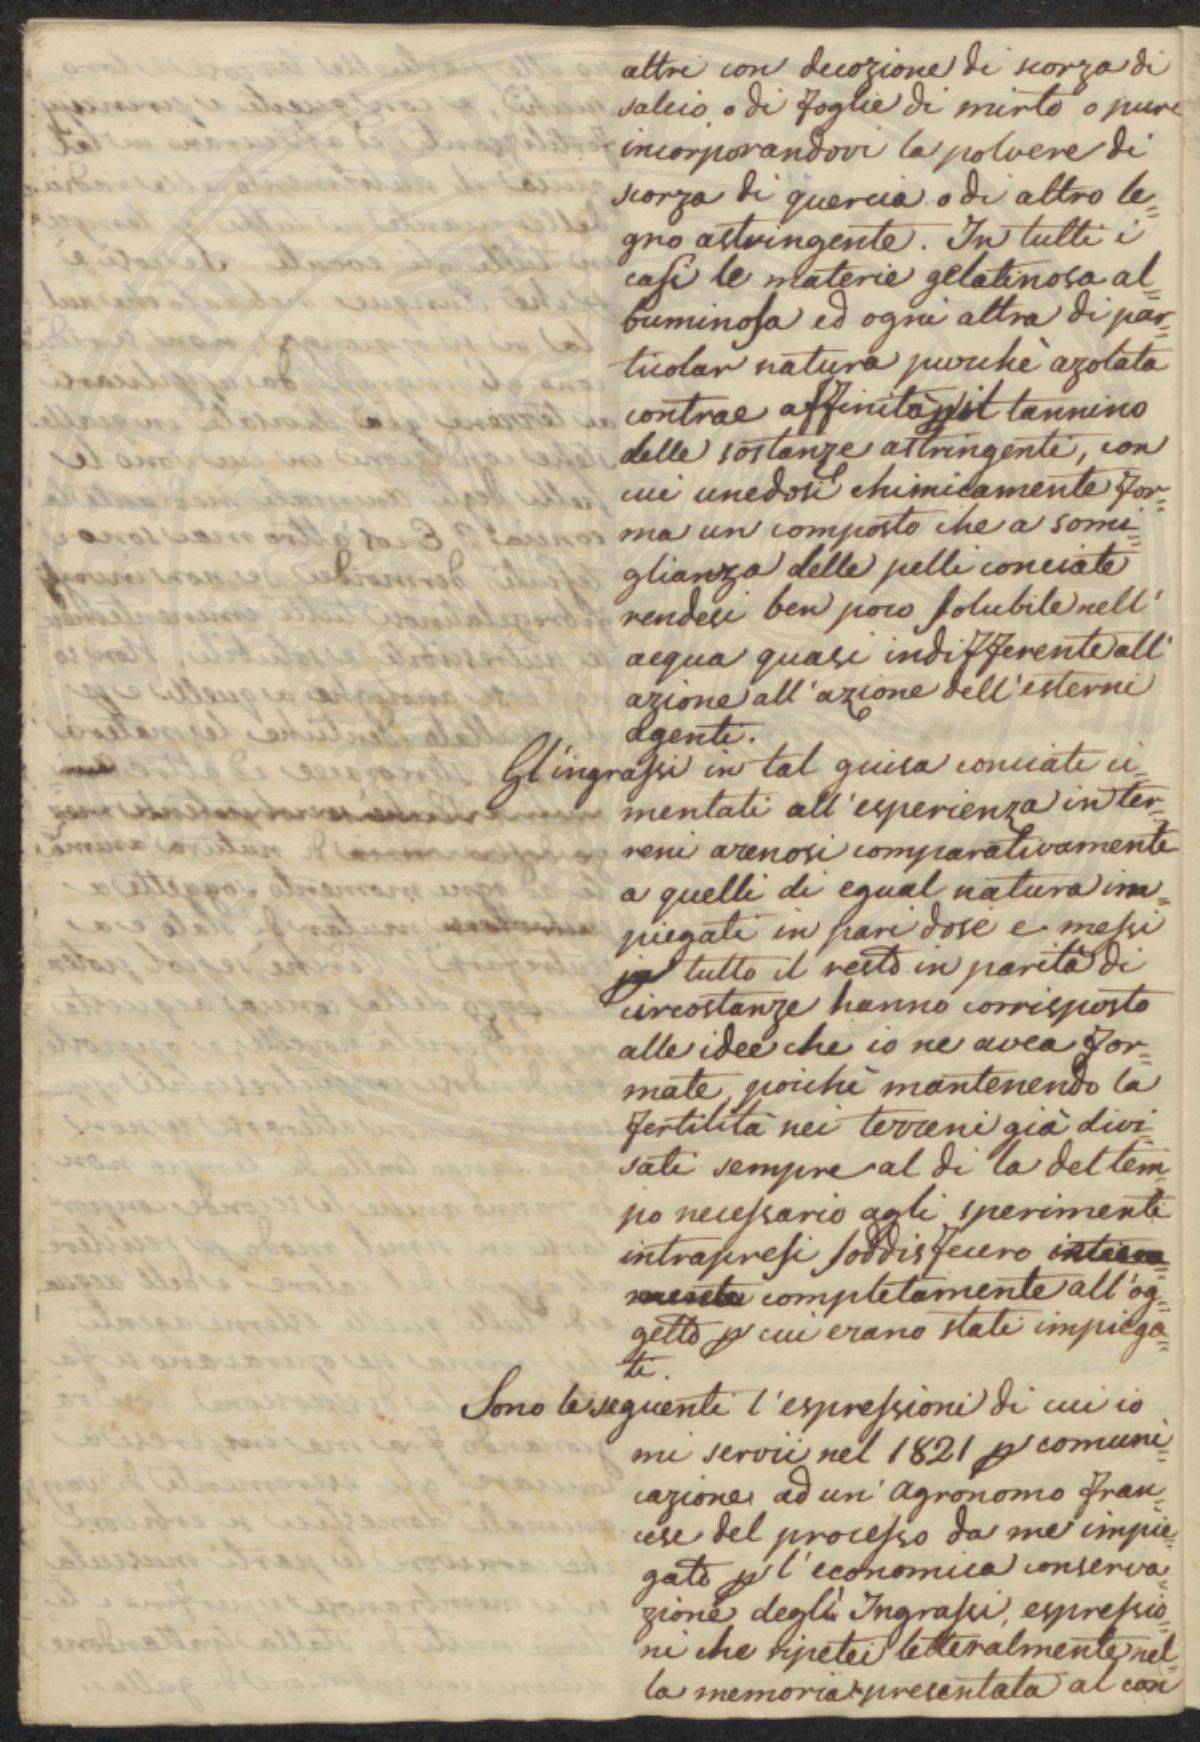 altri con decozione di scorza di
salcio, o di foglie di mirto o pure
incorporandovi la polvere di
scorza di quercia o di altro le=
gno astringente. In tutti i
casi le materie gelatinosa al=
buminosa ed ogni altra di par=
ticolar natura purchè azotata
contrae affinità p il tannino
delle sostanze astringenti, con
cui unedosi chimicamente for=
ma un composto che a somi=
glianza delle pelli conciate
rendesi ben poco solubile nell'
acqua quasi indifferente all'
azione all'azione dell'esterni
agenti.
Gl'ingrassi in tal guisa conciati ci=
mentati all'esperienza in ter=
reni arenosi comparativamente
a quelli di egual natura im=
piegati in pari dose e messi
in tutto il resto in parità di
circostanze hanno corrisposto
alle idee che io ne avea for=
mate, poichè mantenendo la
fertilità nei terreni già divi=
sati sempre al di la del tem=
po necessario agli sperimenti
intrapresi soddisfecero
completamente all'og=
getto p cui erano stati impiega=
ti.
Sono le seguenti l'espressioni di cui io
mi servii nel 1821 p comuni=
cazione ad un' Agronomo fran=
cese del processo da me impie=
gato p l'economica conserva=
zione degli Ingrassi, espressio=
ni che ripetei letteralmente nel=
la memoria presentata al con